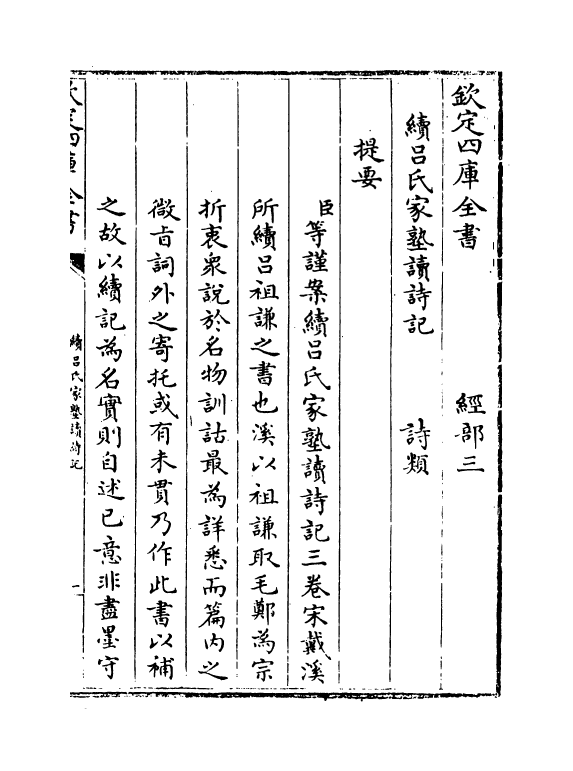 欽定四庫全書　經部三
續吕氏家塾讀詩記　詩類
提要
臣等謹案續吕氏家塾讀詩記三卷宋戴溪
所續吕祖謙之書也溪以祖謙取毛鄭為宗
折衷衆說於名物訓詁最為詳悉而篇内之
微㫖詞外之寄托或有未貫乃作此書以補
之故以續記為名實則自述已意非盡墨守
欽定四庫全書
續吕氏家塾讀詩記
一